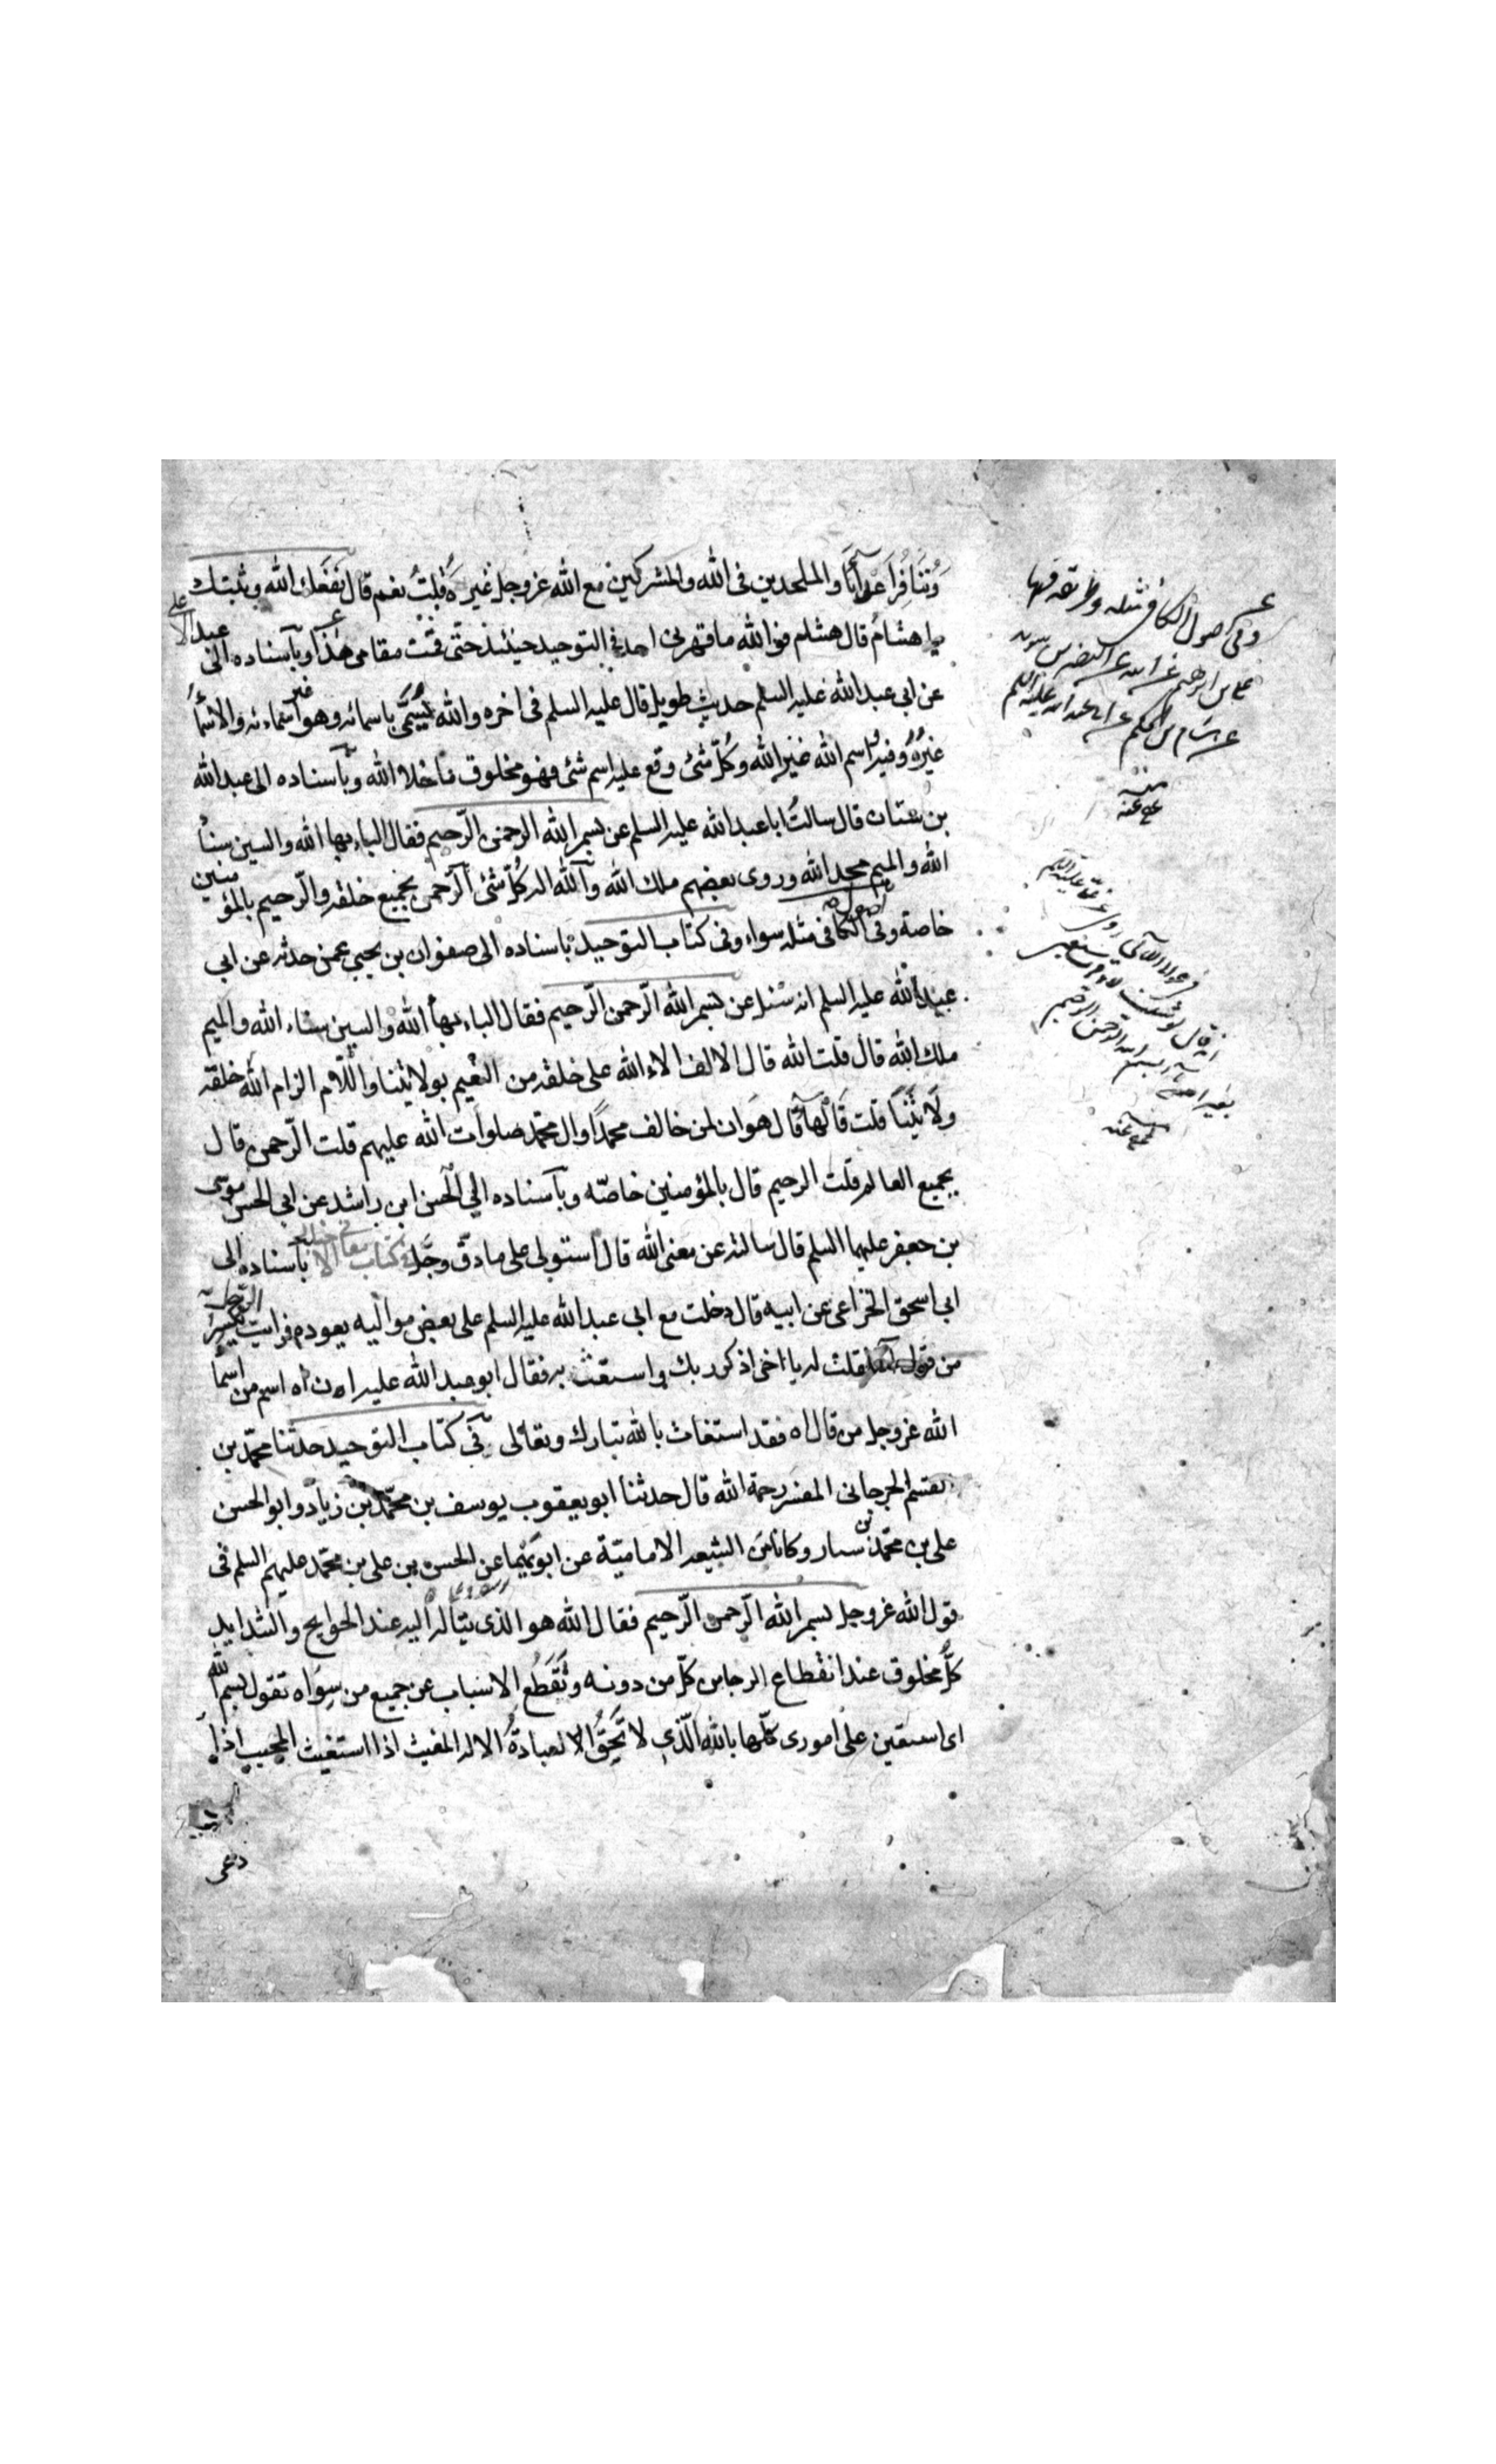 وتنافر اعدائنا والملحدين فى الله والمشركين مع الله عزوجل غيره قلت نعم قال نفعك الله وثبتك
يا هشام قال هشام فوالله ما قهرنى احد فى التوحيد حينئذ حتى قمت مقامى هذا وباسناده الى عبد الاعلى
عن ابى عبد الله عليه السلم حديث طويل قال عليه السلم فى اخره والله يسمى باسمائه وهو غير اسمائه والاسماء
غيره وفيه اسم الله غير الله وكل شئ وقع عليه اسم شئ فهو مخلوق ما خلا الله وباسناده الى عبد الله
بن سنان قال سالت ابا عبد الله عليه السلم عن بسم الله الرحمن الرحيم فقال الباء بهاء الله والسين سناء
الله والميم مجد الله وروى بعضهم ملك الله والله اله كل شئ الرحمن بجميع خلقه والرحيم بالمؤمنين
خاصة وفى اصول الكافى مثله سواء وفى كتاب التوحيد باسناده الى صفوان بن يحيى عمن حدثه عن ابى
عبد الله عليه السلم انه سئل عن بسم الله الرحمن الرحيم فقال الباء بهاء الله والسين سناء الله والميم
ملك الله قال قلت الله قال الالف الاء الله على خلقه من النعيم بولايتنا واللام الزام الله خلقه
ولايتنا قلت فالهاء قال هوان لمن خالف محمدا وال محمد صلوات الله عليهم قلت الرحمن قال
بجميع العالم قلت الرحيم قال بالمؤمنين خاصه وباسناده الى الحسن ابن راشد عن ابى الحسن موسى
بن جعفر عليهما السلم قال سالته عن معنى الله قال استولى على ما دق وجل فى كتاب معانى الاخبار باسناده الى
ابى اسحق الخزاعى عن ابيه قال دخلت مع ابى عبد الله عليه السلم على بعض مواليه يعوده فرايت الرجل يكثر
من قول اه فقلت له يا اخى اذكر ربك واستغث به فقال ابو عبد الله عليه ان اه اسم من اسماء
الله عزوجل من قال اه فقد استغاث بالله تبارك وتعالى فى كتاب التوحيد حدثنا محمد بن
القسم الجرجانى المفسر رحمة الله قال حدثنا ابو يعقوب يوسف بن محمد بن زياد وابو الحسن
على بن محمد بن سيار وكانا من الشيعه الاماميّة عن ابويهما عن الحسن بن على بن محمد عليهم السلم فى
قول الله عزوجل بسم الله الرحمن الرحيم فقال الله هو الذى يتأله اليه عند الحوايج والشدايد
كل مخلوق عند انقطاع الرجا من كل من دونه وتقطع الاسباب عن جميع من سواه تقول بسم الله
اى استعين على امورى كلها بالله الذى لا تحق العبادة الا له المغيث اذا استغيث المجيب اذا
دعى
وفى اصول الكافى مثله
على بن ابرهيم عن ابيه عن النضر بن سويد
عن هشام بن الحكم عن ابى عبد الله عليه السلم
منه
عفى عنه
بسم الله الرحمن الرحيم
منه
عفى عنه